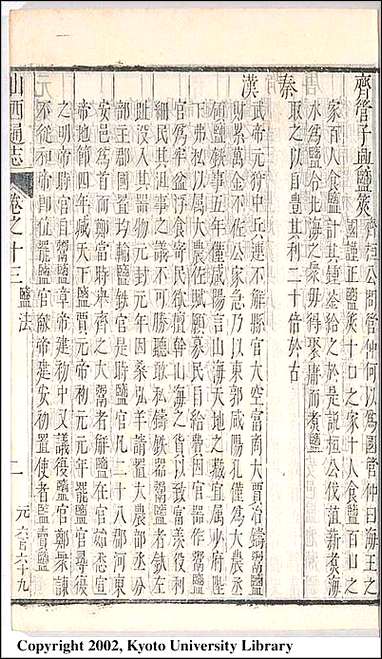 齊管子畫鹽筴 齊桓公問管仲何以爲國管仲曰海王之
國謹正鹽筴十口之家十人食鹽百口之
家百人食鹽計其鍾釜給之於是說桓公伐菹薪煮海
水爲鹽令北海之衆毋得聚庸而煮鹽
秦
取之以自豊其利二十倍於古
漢
武帝元狩中兵連不解縣官大空富商大賈冶鑄鬻鹽
財累萬金不佐公家急乃以東郭咸陽孔僅爲大農丞
領鹽鉄事五年僅咸陽言山海天地之藏宜属少府陛
下弗私以属大農佐賦願募民自給費因官器作鬻鹽
官爲牢盆浮食寄民欲擅斡山海之貨以致富羡役利
細民其沮事之議不可勝聽敢私鑄鉄器鬻鹽者釱左
趾沒入其器物元封元年因桑弘羊請置大農部丞分
部主郡國置均輸鹽鉄官是時鹽官凡二十八郡河東
安邑爲首而鄭當時齊之大鬻者解鹽在官始悉宣
帝地節四年咸天下鹽賈元帝初元元年罷鹽官尋復
之明帝時官自鬻鹽章帝建初中又議復鹽官鄭衆諫
不從和帝即位罷鹽官獻帝建安初置使者監賣鹽
山西通志 卷之十三 鹽法 二 元 六百六十九
Copyright 2002, Kyoto University Library